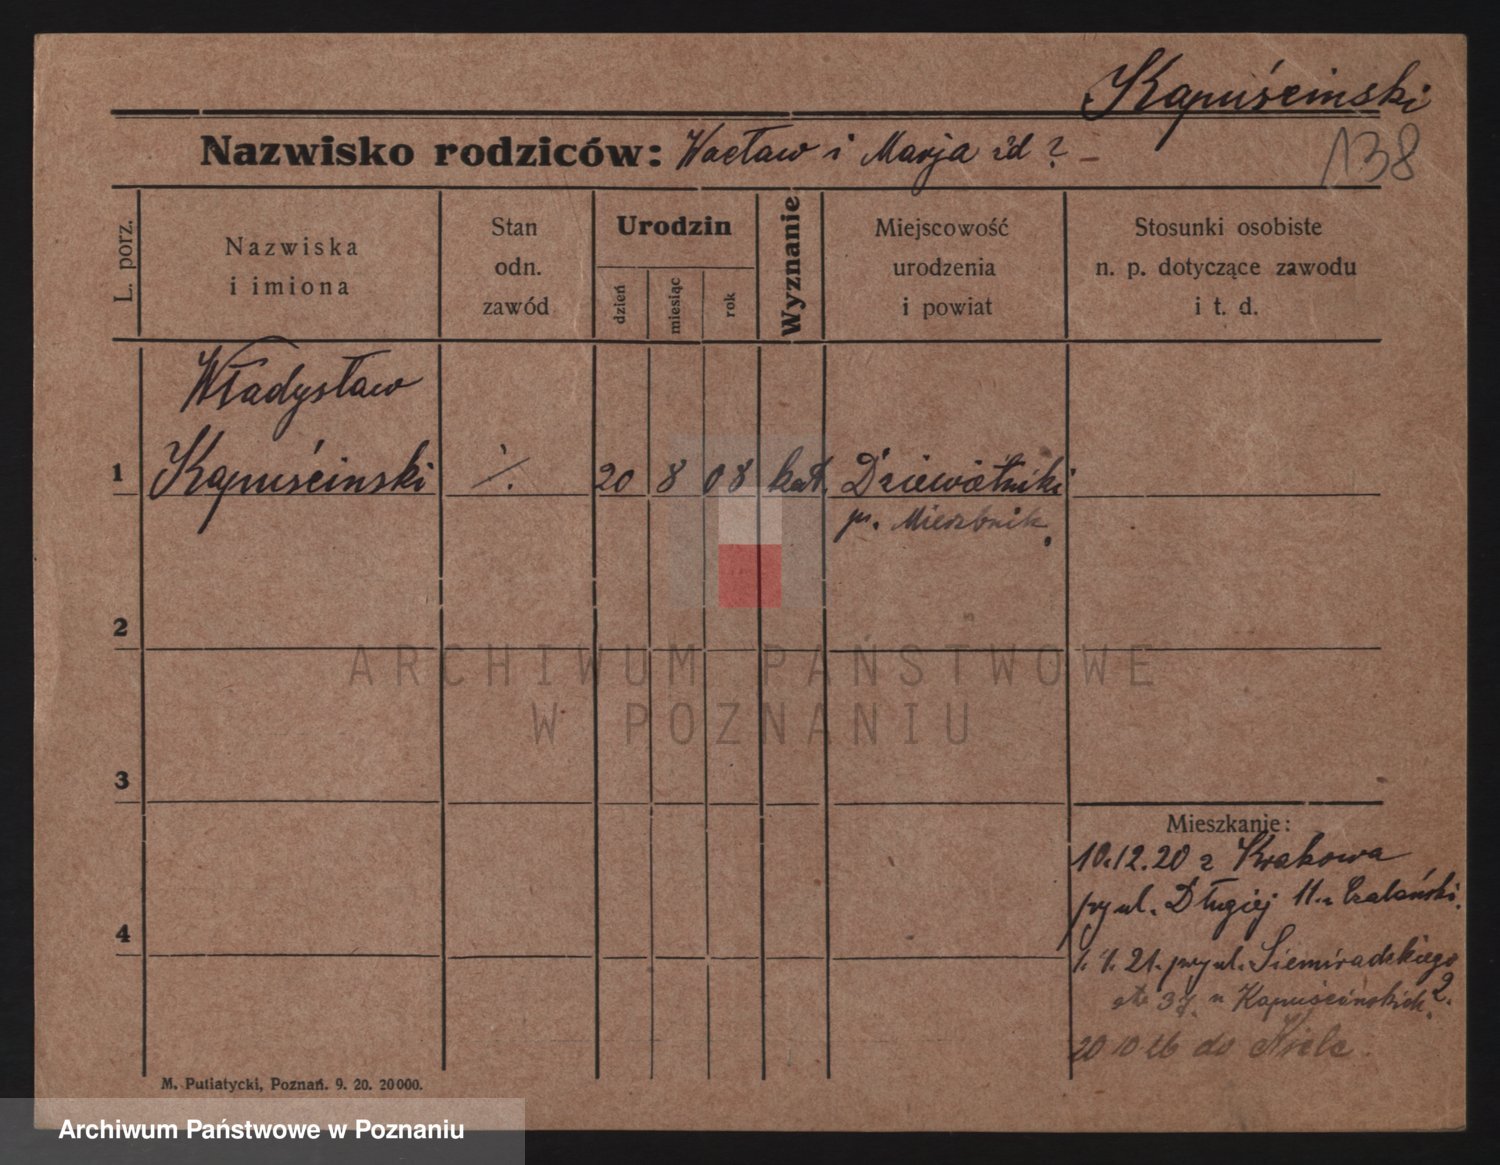 Kapuścinski
Nazwisko rodziców: Wacław i Marja
138
L. porz.
Nazwiska
i imiona
Stan
odn.
zawód
Urodzin
dzień
miesiąc
rok
Wyznanie
Miejscowość
urodzenia
i powiat
Stosunki osobiste
n. p. dotyczące zawodu
i t. d.
Władysław
1 Kapuścinski ·/. 20 8 08 kat.
p.
2
ARCHIWUM PAŃSTWOWE
W POZNANIU
3
Mieszkanie:
10.12.20 z Krakowa
przy ul. Długiej 11.
4
21. przy ul. Siemiradzkiego
Kapuścińskich
20 10 26 do Kielc.
M. Putiatycki, Poznań. 9. 20. 20000.
Archiwum Państwowe w Poznaniu